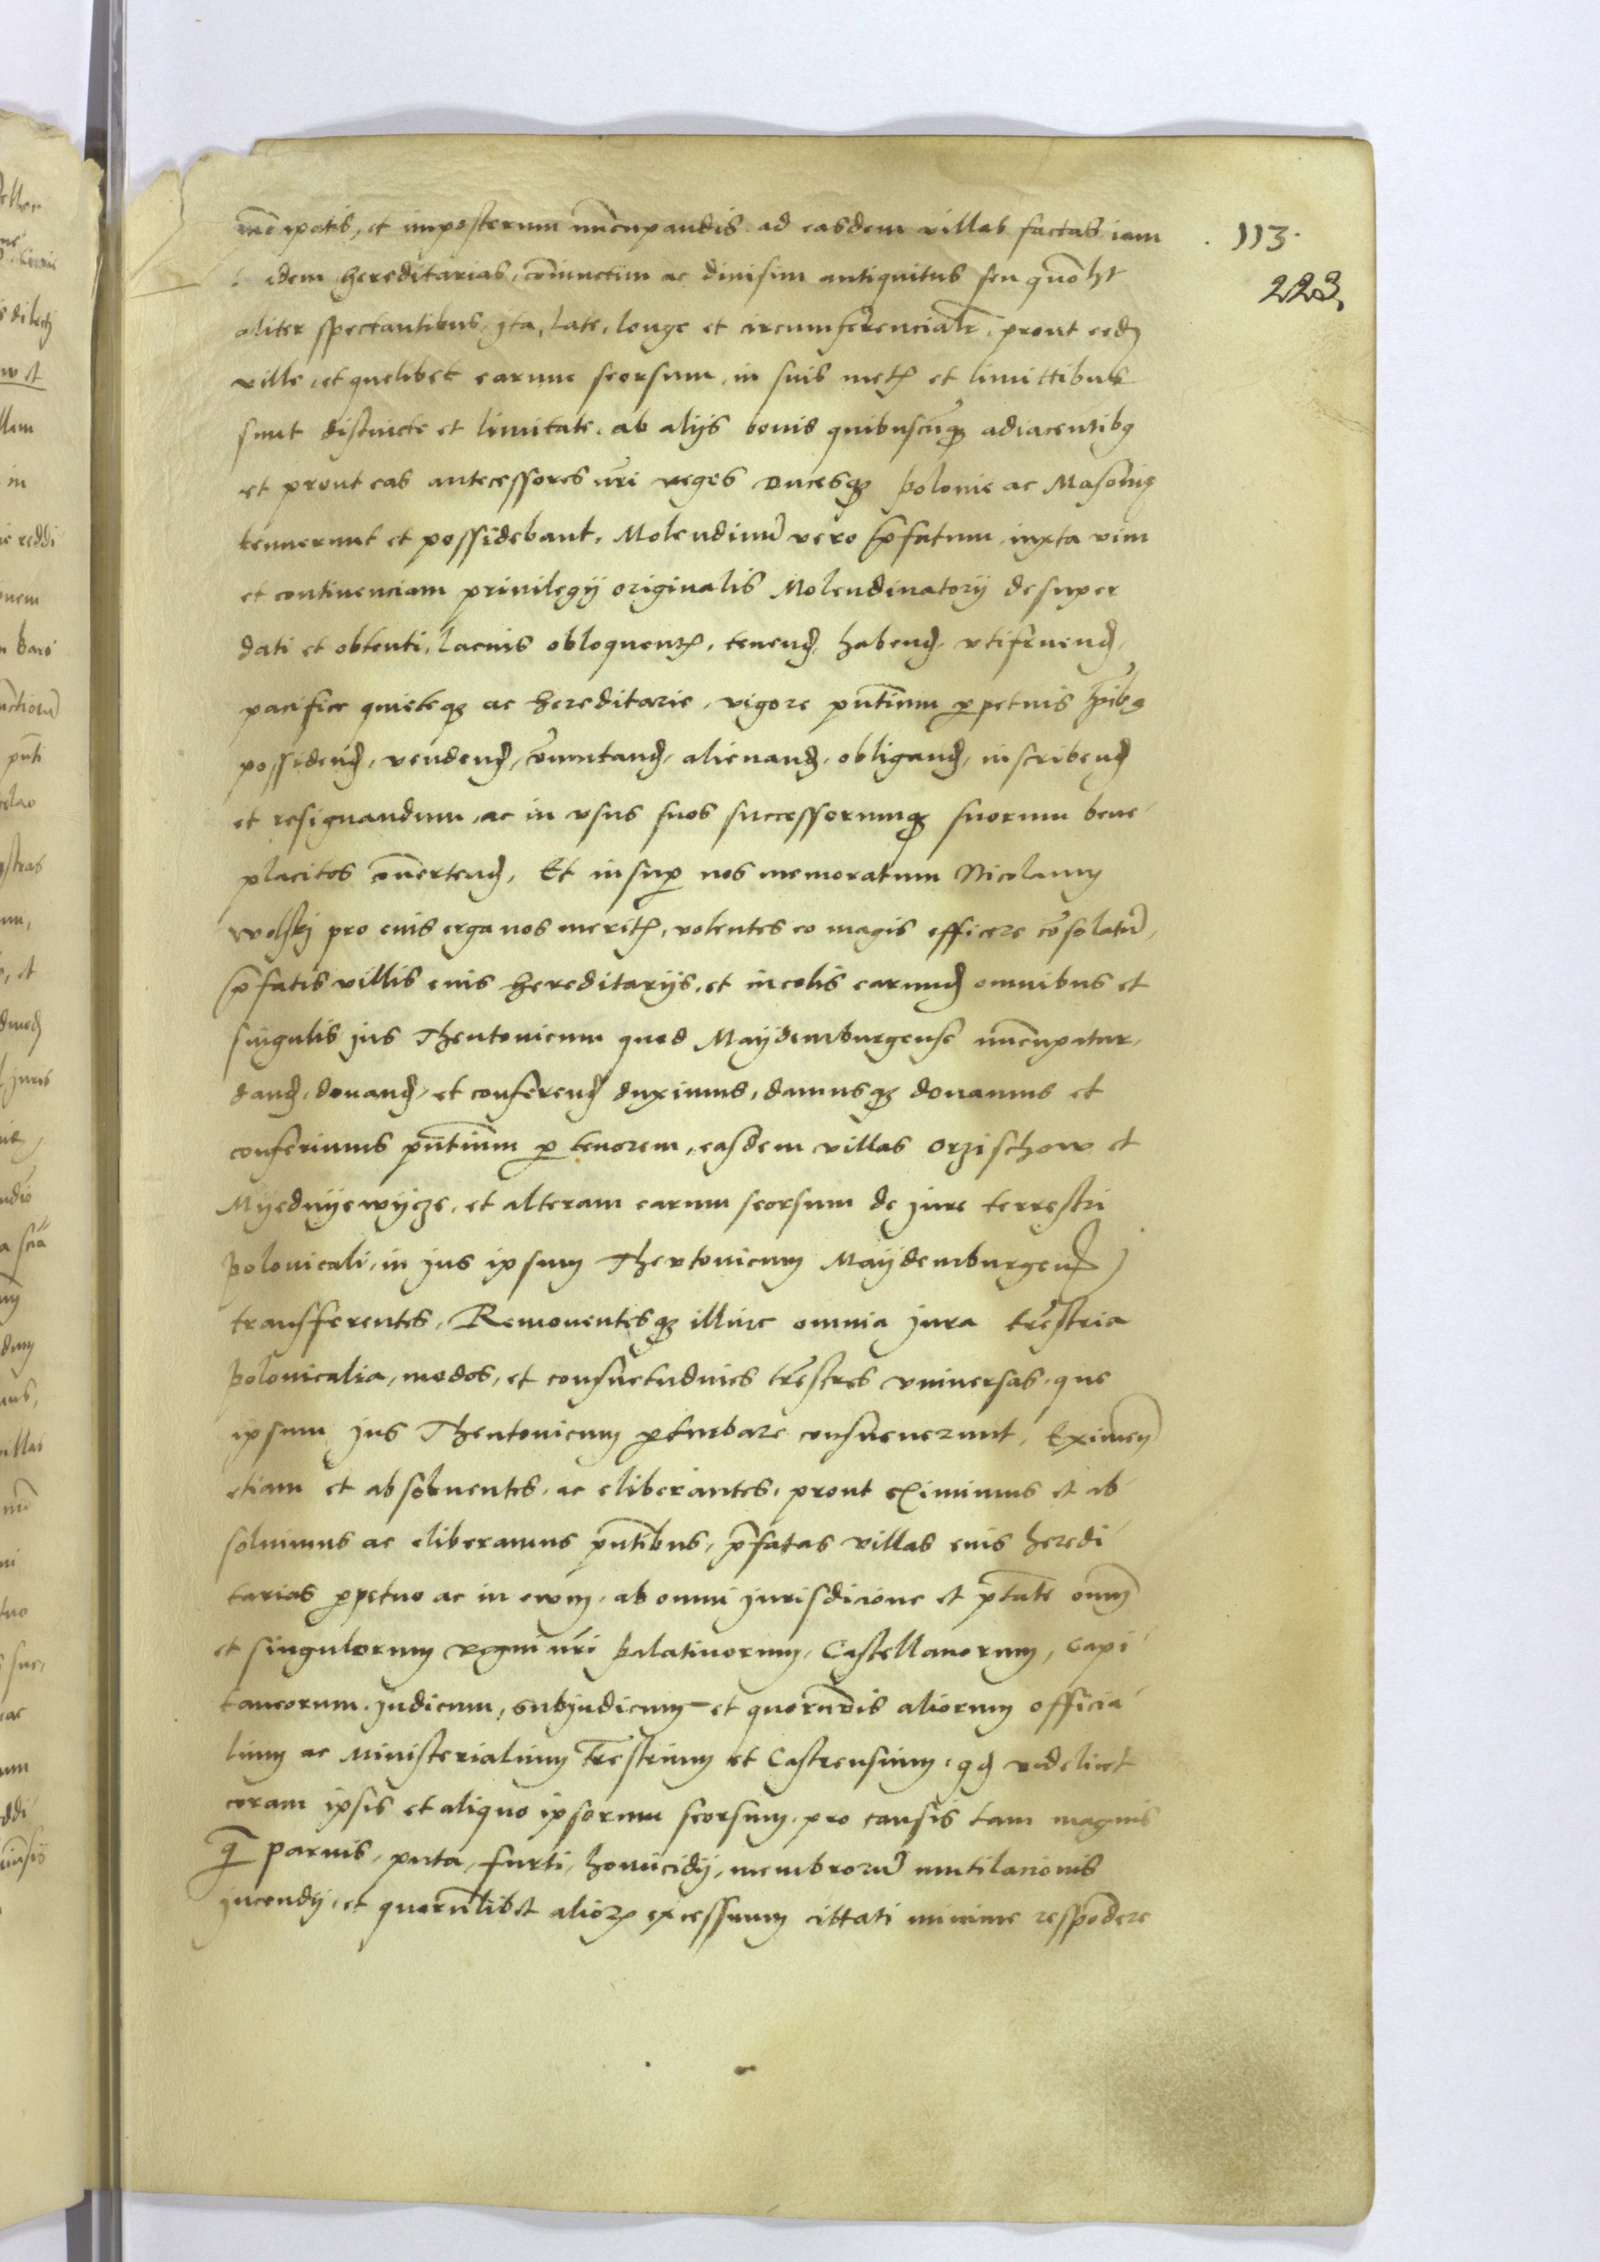 nūcupatis, et imposterum nūcupandis ad easdem villas factas iam
idem hereditarias, coniunctim ac diuisim antiquitus seu quōlt
aliter spectantibus, jta, late, longe et circumferencialr, prout eedꝫ
ville, et quelibet earum seorsum, in suis metꝭ et limittibus
sunt distincte et limitate, ab alijs bonis quibuscūqꝫ adiacentibꝫ
et prout eas antecessores nr̄i reges Ducesqꝫ Polonie ac Masouie
tenuerunt et possidebant, Molendinū vero p̄fatum, iuxta vim
et continenciam priuilegij originalis Molendinatorij desuper
dati et obtenti, lacius obloquentꝭ, tenend, habend, vtifruend,
pacifice quieteqꝫ ac hereditarie, vigore pn̄tium ꝑpetuis tp̄ibꝫ
possidend, vendend, cōmutand, alienand, obligand, inscribend
et resignandum, ac in vsus suos successorumqꝫ suorum bene
placitos cōuertend, Et insuꝑ nos memoratum Nicolaum
wolski pro eius erga nos meritꝭ, volentes eo magis efficere cōsolatū,
p̄fatis villis eius hereditarijs, et incolis earund omnibus et
singulis jus Theutonicum quod Maydemburgense nūcupatur,
dand, donand, et conferend duximus, damusqꝫ donamus et
conferimus pn̄tium ꝑ tenorem, easdem villas Orzischow et
Myednyewycze, et alteram earum seorsum de jure terrestri
polonicali, in jus ipsum Thevtonicum Maydemburgen
transferentes, Remouentesqꝫ illinc omnia jura tr̄estria
polonicalia, modos, et consuetudnies tr̄estres vniuersas, que
ipsum jus Theutonicum ꝑturbare consueuerunt, Eximen̄
etiam et absoluentes, ac eliberantes, prout eximimus et ab
soluimus ac eliberamus pn̄tibus, p̄fatas villas eius heredi
tarias ꝑpetuo ac in ewm, ab omni jurisdicione et ptāte om̄
et singulorum regni nr̄i Palatinorum, Castellanorum, Capi
taneorum, judicum, subjudicum et quorūuis aliorum officia
lium ac Ministerialium tr̄estrium et Castrensium, qꝙ videlicet
coram ipsis et aliquo ipsorum seorsum, pro causis tam magnis
q̄ paruis, puta, furti, homicidij, membrorū mutilacionis
jncendij, et quorūlibet alioꝝ excessuum cittati minime respōdere
113.
223,